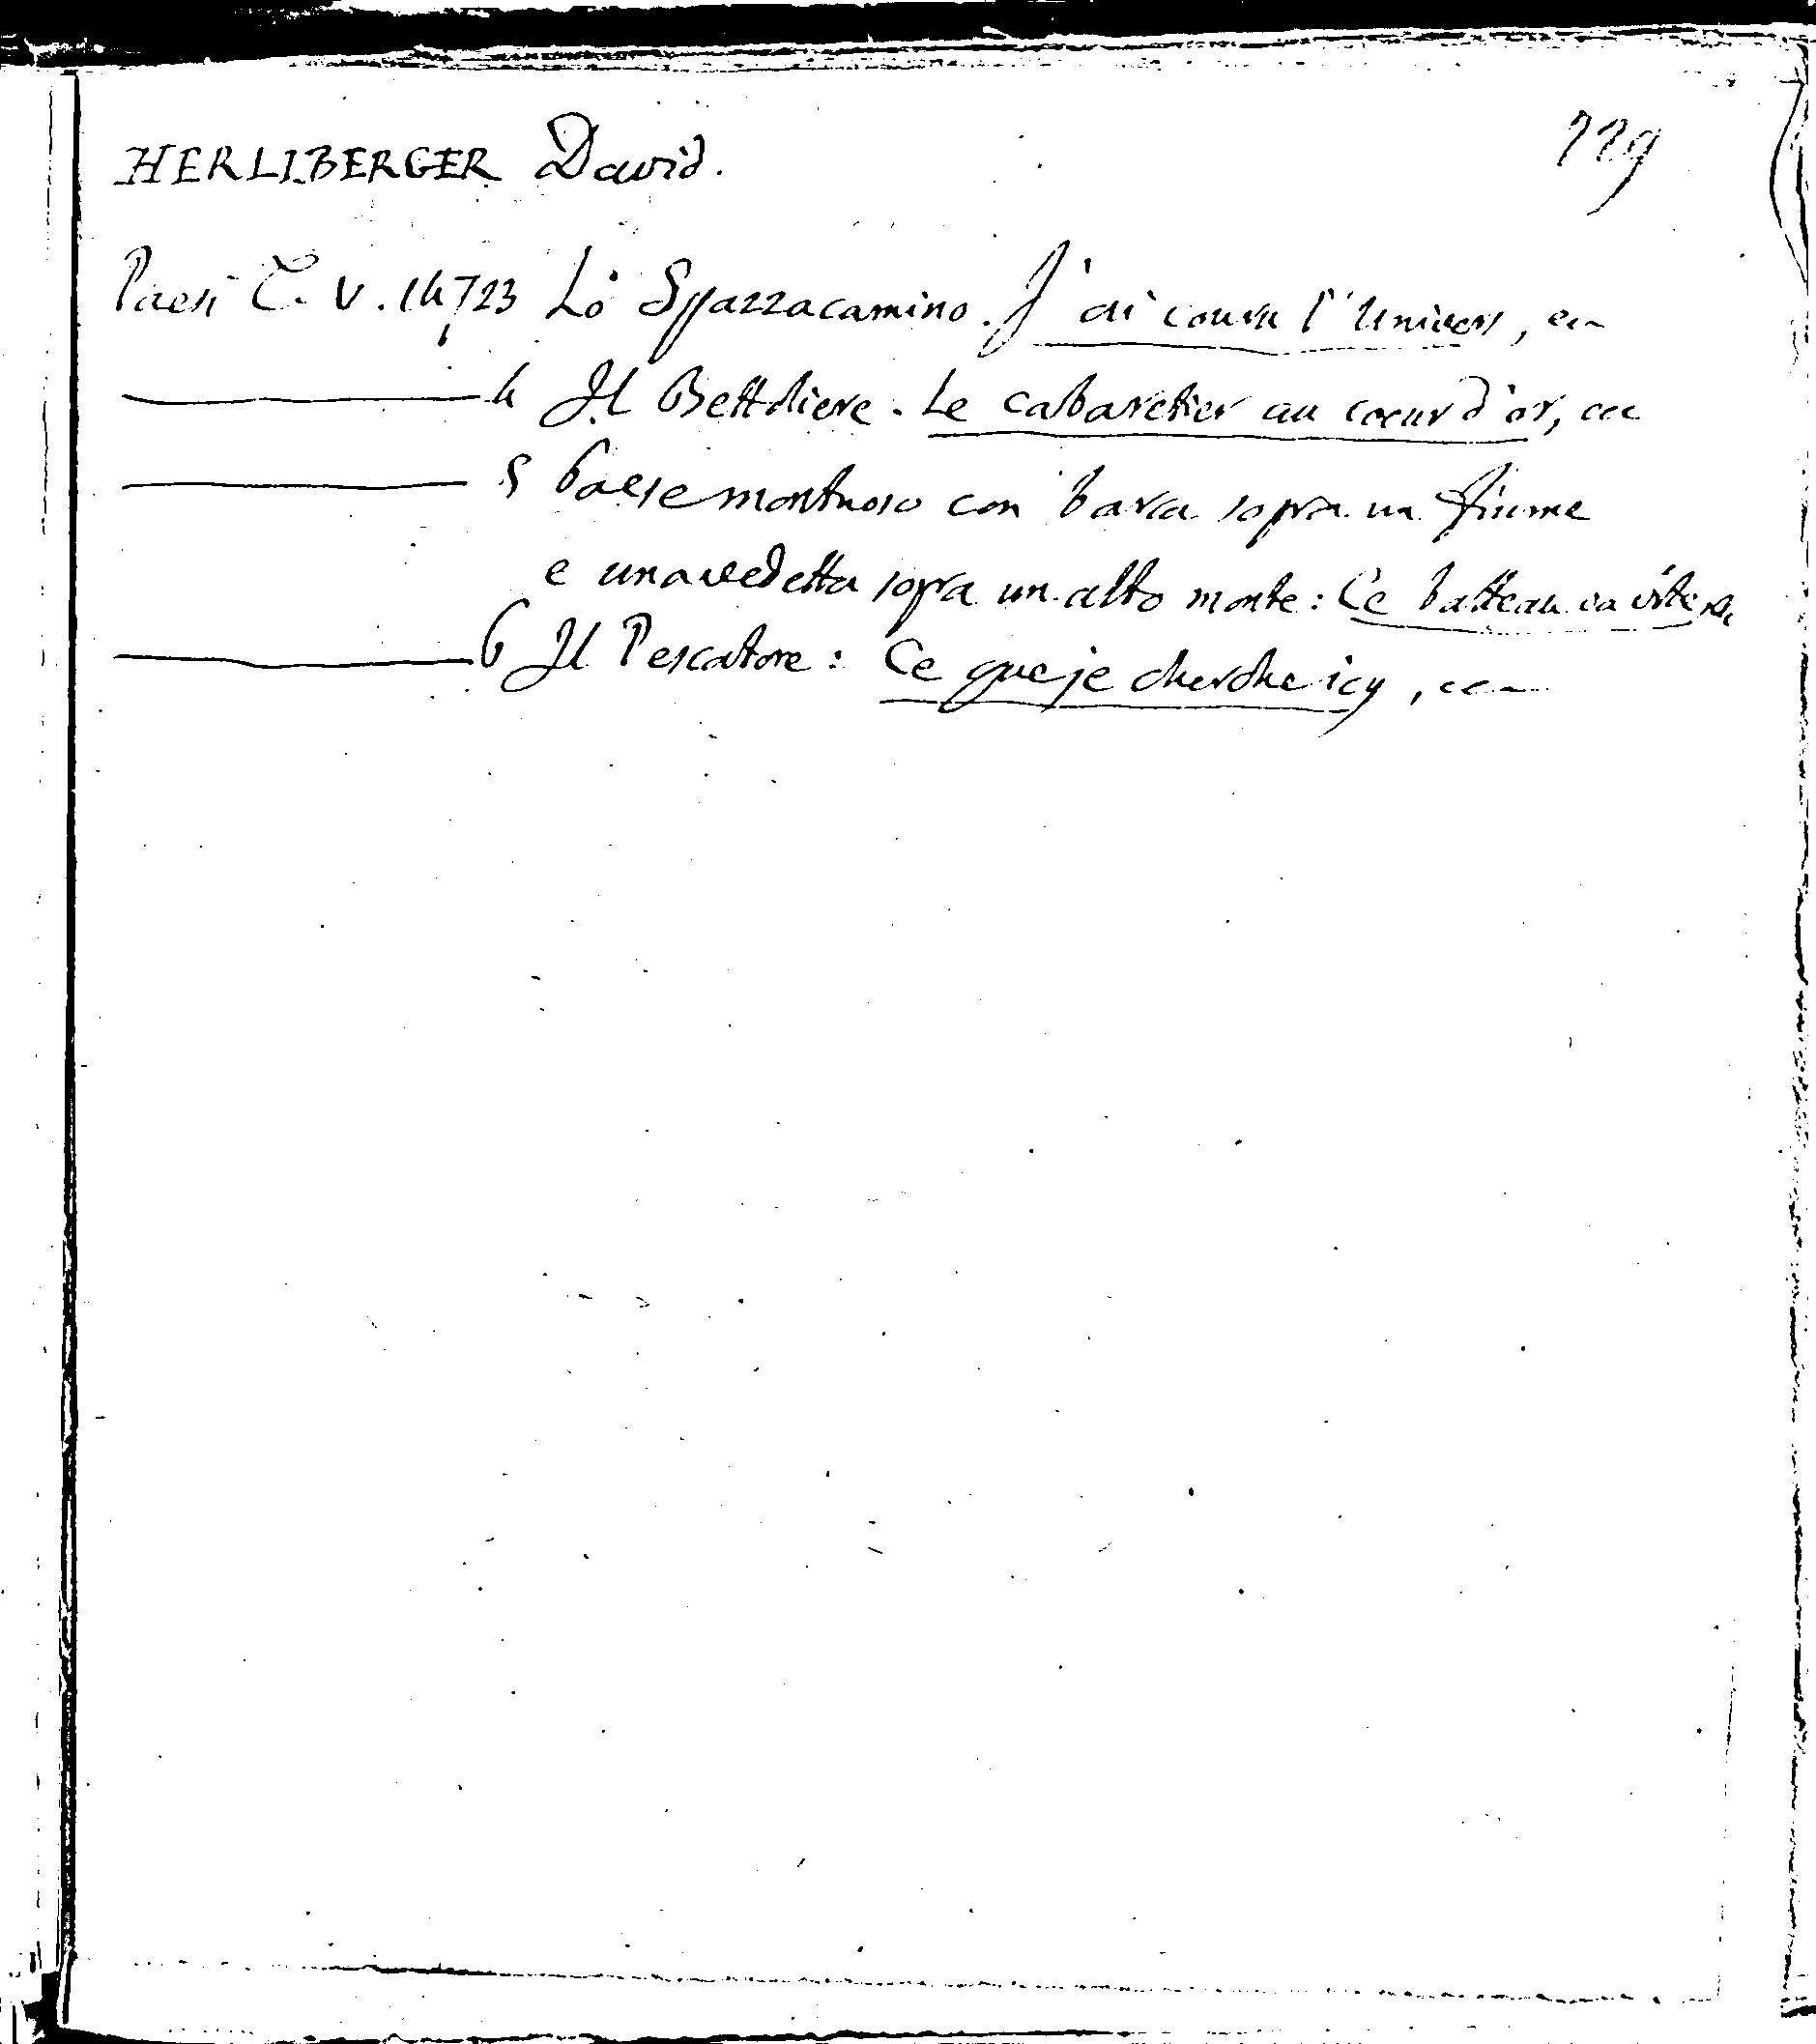 HERLIBERGER David. 729
Paesi T. V. 14723 Lo Spazzacamino. J'ai couru l'Univers, ec
4 Il Bettoliere. Le cabaretier au coeur d'or, ec
5 Paese montuoso con barca sopra un fiume
e una vedetta sopra un alto monte: Ce batteau va vite ec
6 Il Pescatore: Ce que je cherche icy, ec